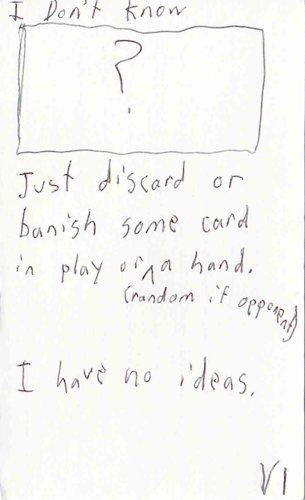 I Don't know
?
Just discard or
banish some card
in play or in a hand.
(random if opponent)
I have no ideas.
V1